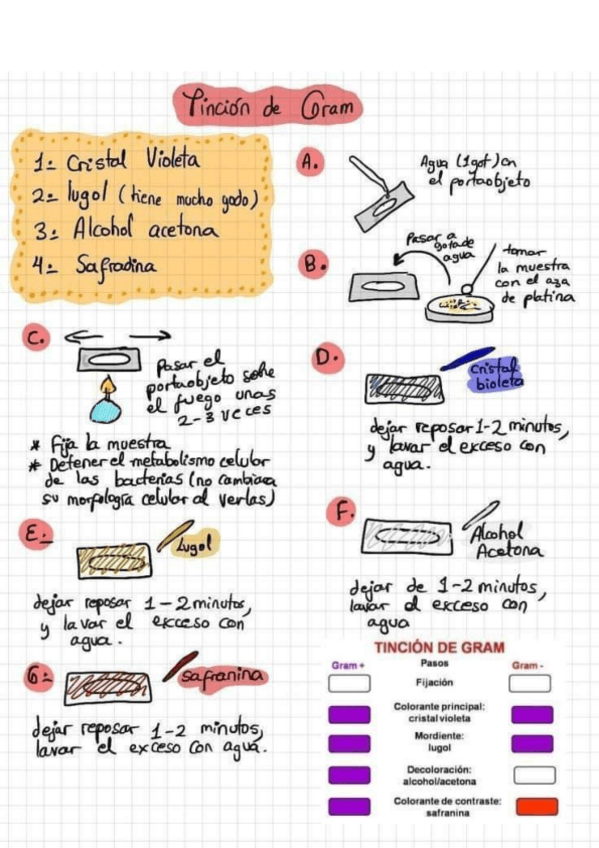 Tinción de Gram
1= Cristal Violeta
2= lugol (tiene mucho yodo)
3= Alcohol acetona
4= Safradina
A.
Agua (1 got) en
el portaobjeto
B.
Pasar a
gota de
agua
tomar
la muestra
con el aza
de platina
C.
Pasar el
portaobjeto sobre
el fuego unas
2-3 veces
* Fija la muestra
* Detener el metabolismo celular
de las bacterias (no cambiara
su morfología celular al verlas)
D.
Cristal
bioleta
dejar reposar 1-2 minutos,
y lavar el exceso con
agua.
E.
Lugol
dejar reposar 1-2 minutos,
y lavar el exceso con
agua.
F.
Alcohol
Acetona
dejar de 1-2 minutos,
lavar el exceso con
agua
G=
safranina
dejar reposar 1-2 minutos,
lavar el exceso con agua.
TINCIÓN DE GRAM
Gram + Pasos Gram -
Fijación
Colorante principal:
cristal violeta
Mordiente:
lugol
Decoloración:
alcohol/acetona
Colorante de contraste:
safranina